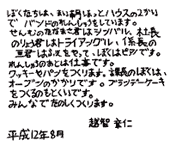 ぼくたちは、まい朝ほっとハウスの2かい
で バンドのれんしゅうをしています。
せんむのたなまさ君はシンバル、社長
のりょう君はトライアングル、係長の
君はふえをやって、ぼくはピアノです。
れんしゅうのあとは仕事です。
クッキーもパンをつくります。課長のぼくは、
オーブンのかかりです。フランジケーキ
をつくるのもとくいです。
みんなで たのしくつくります。
越智 仁
平成12年8月